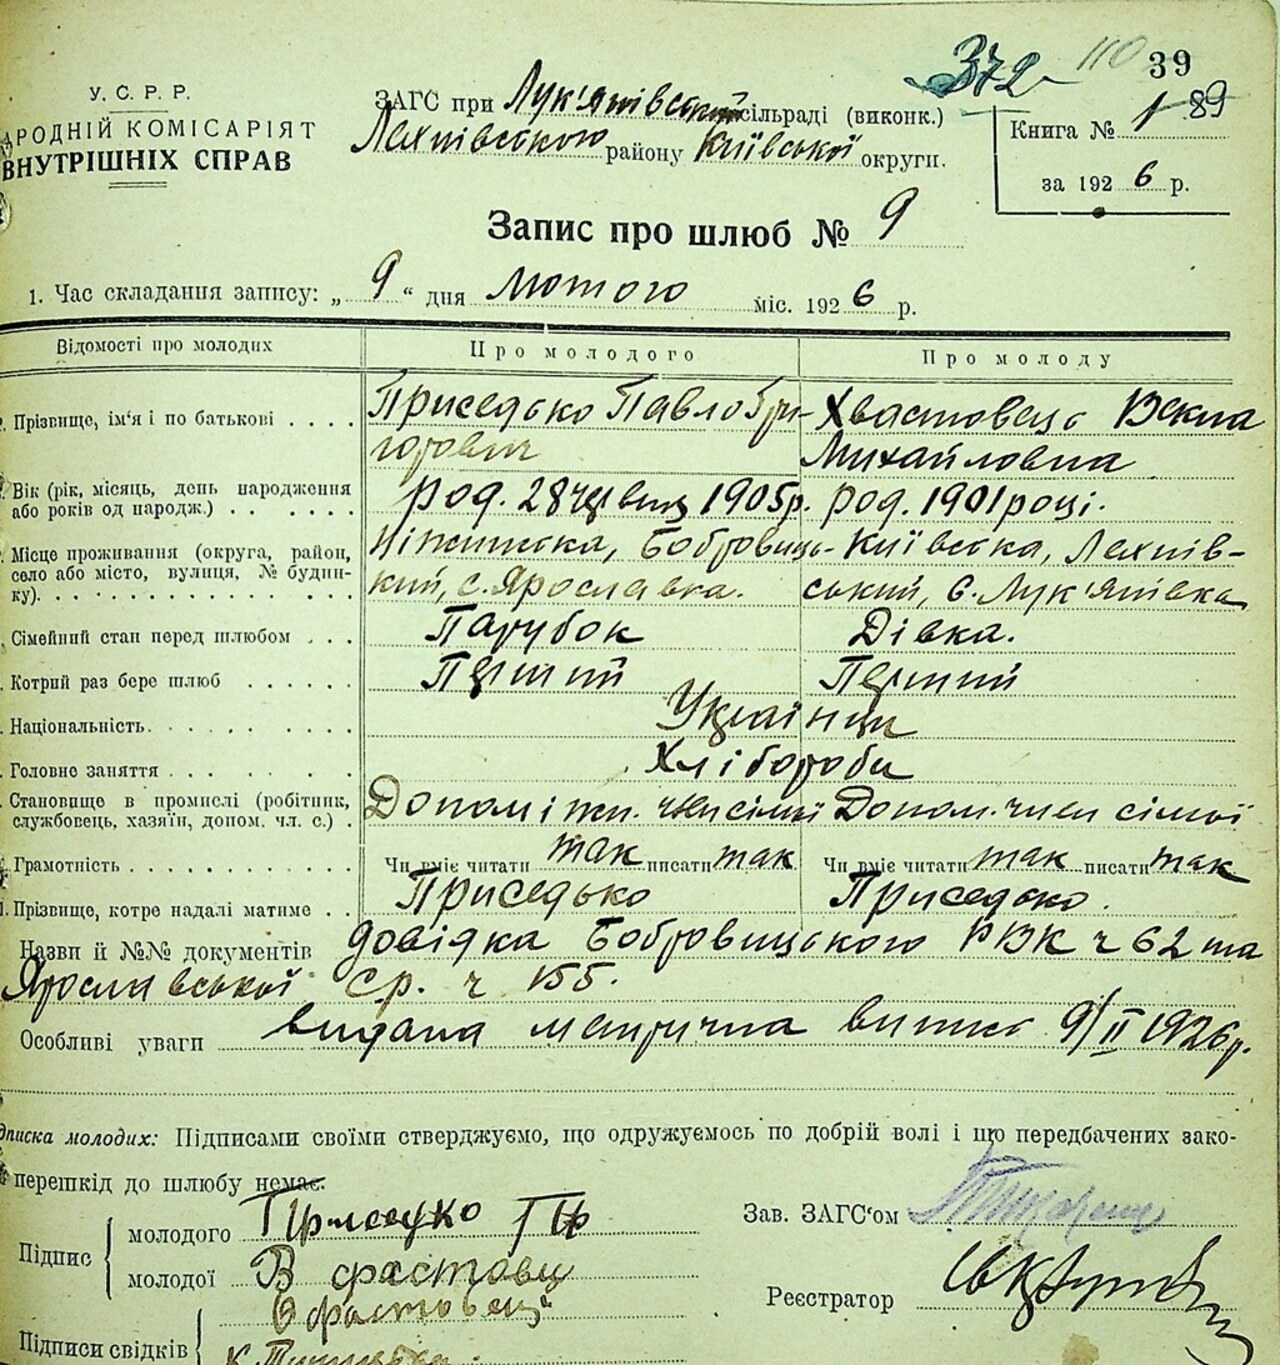 372 110 39
У. С. Р. Р.
АРОДНІЙ КОМІСАРІЯТ
ВНУТРІШНІХ СПРАВ
ЗАГС при Лук'янівській сільраді (виконк.)
Лехнівського району Київської округи.
Книга № 1 89
за 1926 р.
Запис про шлюб № 9
1. Час складання запису: „9“ дня Лютого міс. 1926 р.
Відомості про молодих Про молодого Про молоду
Прізвище, ім'я і по батькові . . . . Приседько Павло Гри- Хвастовець Векла
горович Михайловна
Вік (рік, місяць, день народження род. 28 червня 1905р. род. 1901 році.
або років од народж.) . . . . . .
Місце проживання (округа, район, Ніжинська, Бобровиць- Київська, Лехнів-
село або місто, вулиця, № будин- кий, с. Ярославка. ський, с. Лук'янівка
ку). . . . . . . . . . . . . . .
Сімейний стан перед шлюбом . . . Парубок Дівка.
Котрий раз бере шлюб . . . . . . Перший Перший
Національність. . . . . . . . . . Українци
Головне заняття . . . . . . Хлібороби
Становище в промислі (робітник, Допоміжн. член сімьї Допом. член сімьї
службовець, хазяїн, допом. чл. с.) .
Грамотність . . . . . . . . . . . . Чи вміє читати так писати так Чи вміє читати так писати так
Прізвище, котре надалі матиме . . Приседько Приседько.
Назви й №№ документів довідка Бобровицького РВК ч 62 та
Ярославської ср. ч 155.
Особливі уваги видана метрична випис 9/II 1926р.
дписка молодих: Підписами своїми стверджуємо, що одружуємось по добрій волі і що передбачених зако-
перешкід до шлюбу немає.
Підпис молодого
молодої В фастовец
Зав. ЗАГС'ом
Реєстратор
Підписи свідків Фастовець